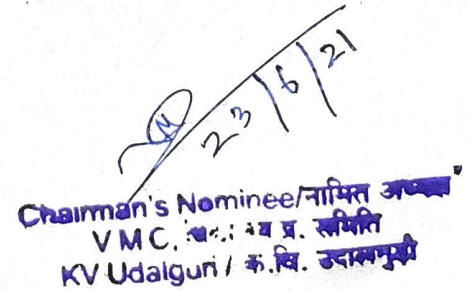 23/6/21
Chairman's Nominee/नामित अध्यक्ष
V M C, प्र. समिति
KV Udalguri / के.वि. उदालगुड़ी